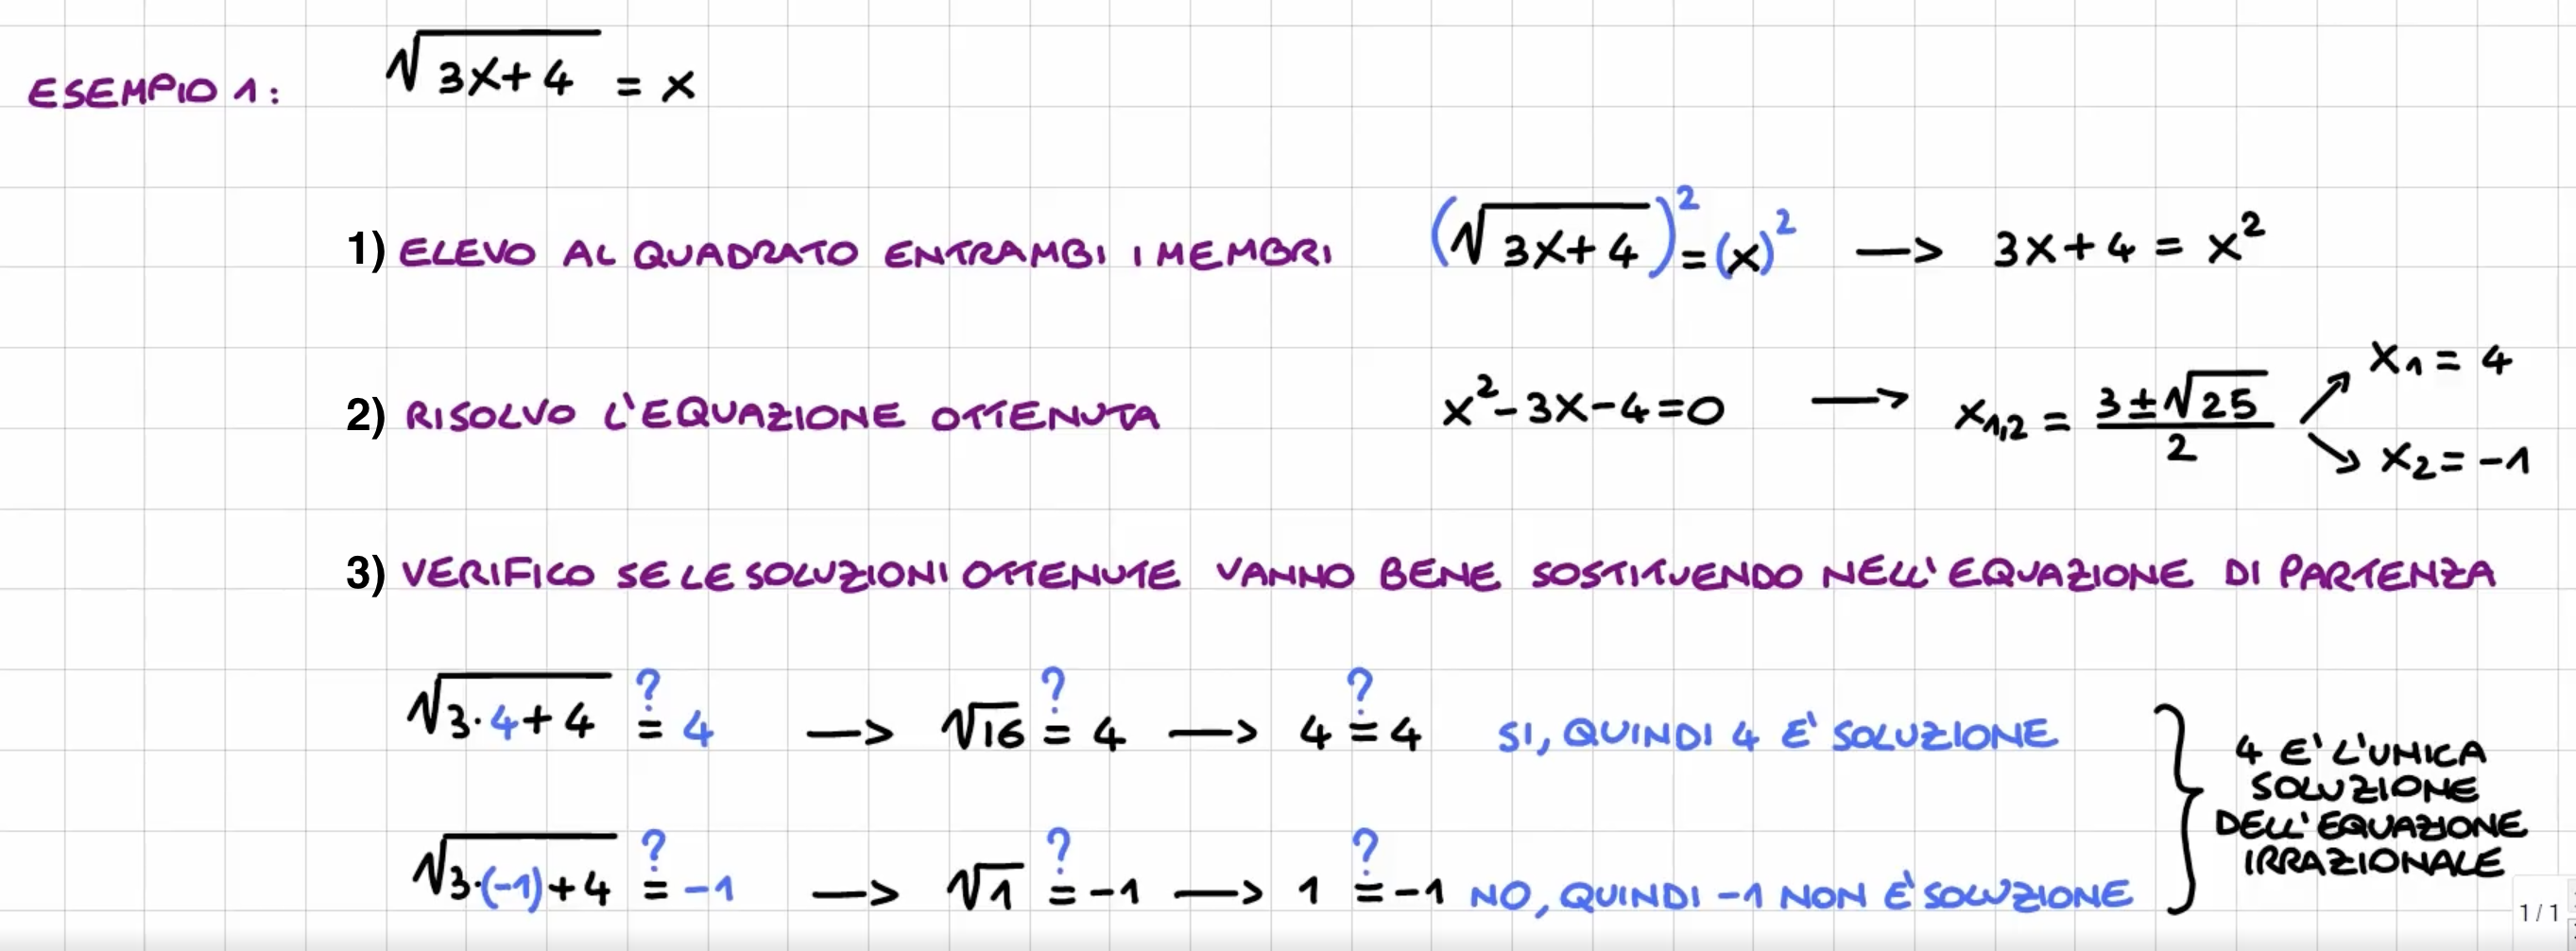 ESEMPIO 1: √(3x+4) = x
1) ELEVO AL QUADRATO ENTRAMBI I MEMBRI (√(3x+4))² = (x)² → 3x+4 = x²
2) RISOLVO L'EQUAZIONE OTTENUTA x²-3x-4=0 → x₁,₂ = (3±√25)/2 ↗ x₁ = 4 ↘ x₂ = -1
3) VERIFICO SE LE SOLUZIONI OTTENUTE VANNO BENE SOSTITUENDO NELL'EQUAZIONE DI PARTENZA
√(3·4+4) =? 4 → √16 =? 4 → 4 =? 4 SI, QUINDI 4 E' SOLUZIONE
√(3·(-1)+4) =? -1 → √1 =? -1 → 1 =? -1 NO, QUINDI -1 NON E' SOLUZIONE
}
4 E' L'UNICA
SOLUZIONE
DELL'EQUAZIONE
IRRAZIONALE
1 / 1